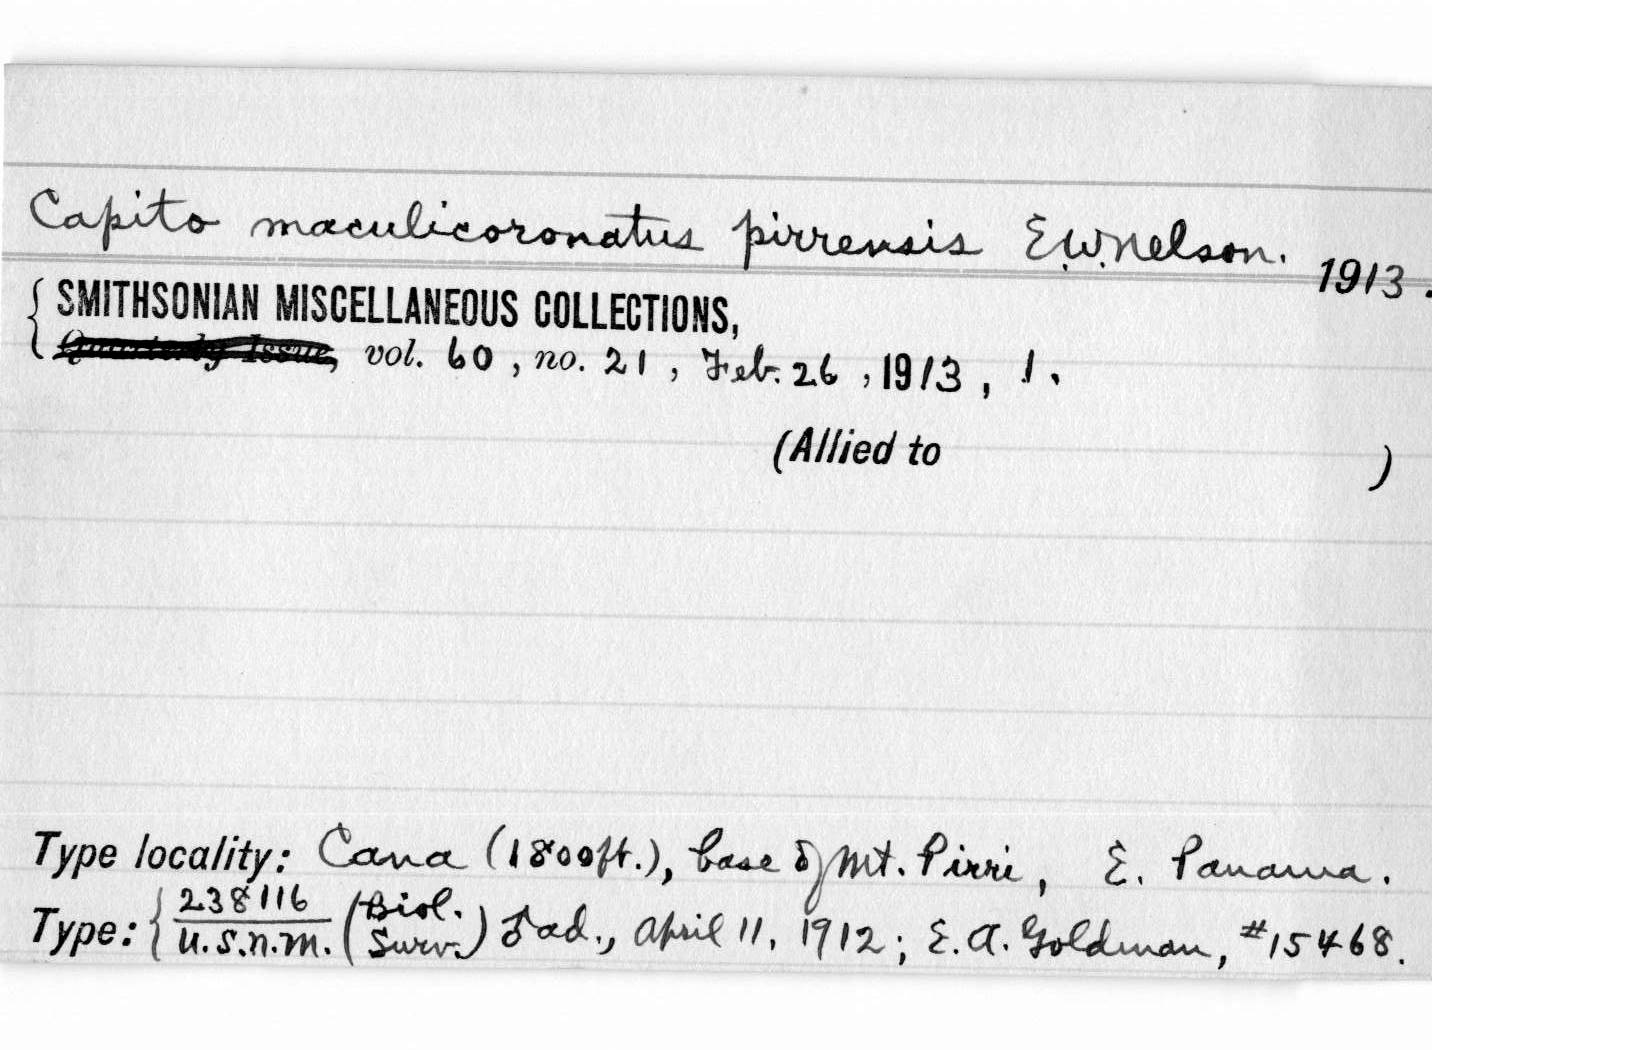 Capito maculicoronatus pirrensis E.W. Nelson. 1913.
{ SMITHSONIAN MISCELLANEOUS COLLECTIONS,
Quarterly Issue, vol. 60, no. 21, Feb. 26, 1913, 1.
(Allied to )
Type locality: Cana (1800 ft.), base of Mt. Pirri, E. Panama.
Type: { 238116 / U.S.N.M. (Biol. Surv.) ♂ ad., April 11, 1912; E. A. Goldman, #15468.